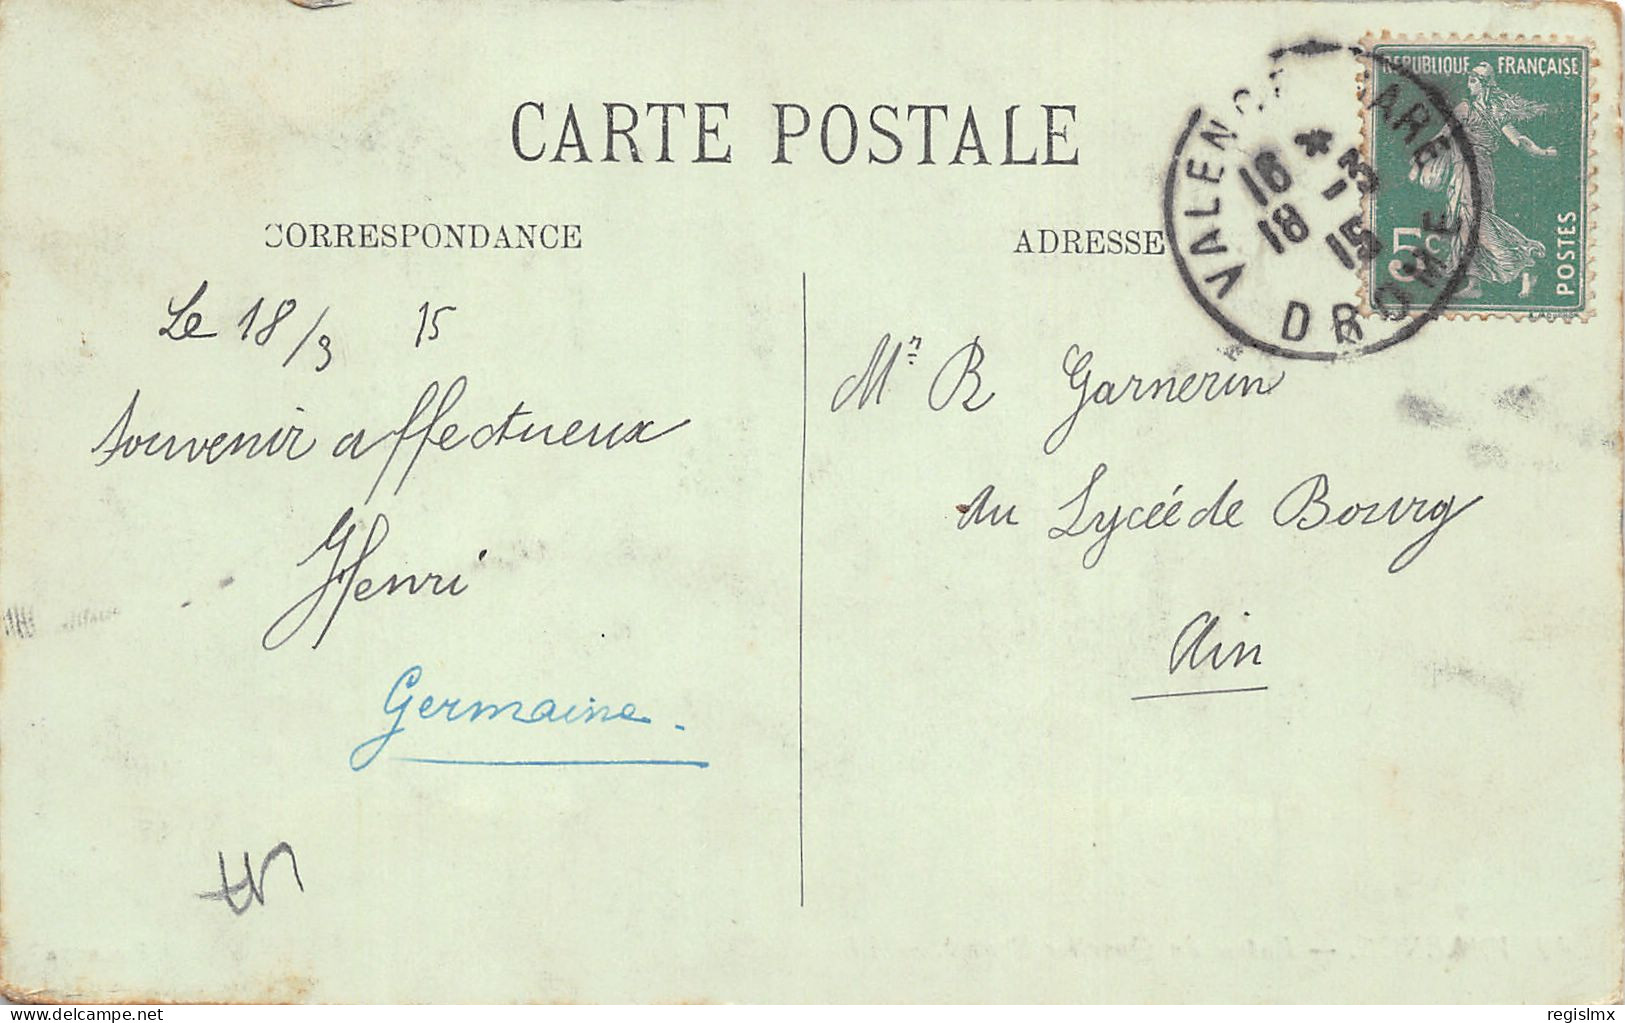 CARTE POSTALE
CORRESPONDANCE
ADRESSE
RÉPUBLIQUE FRANÇAISE
5c
POSTES
VALENCE GARE
18 * 3
18 15
DROME
Le 18/3 15
Souvenir affectueux
Henri
Germaine.
Mr R Garnerin
du Lycée de Bourg
Ain
www.delcampe.net
regislmx